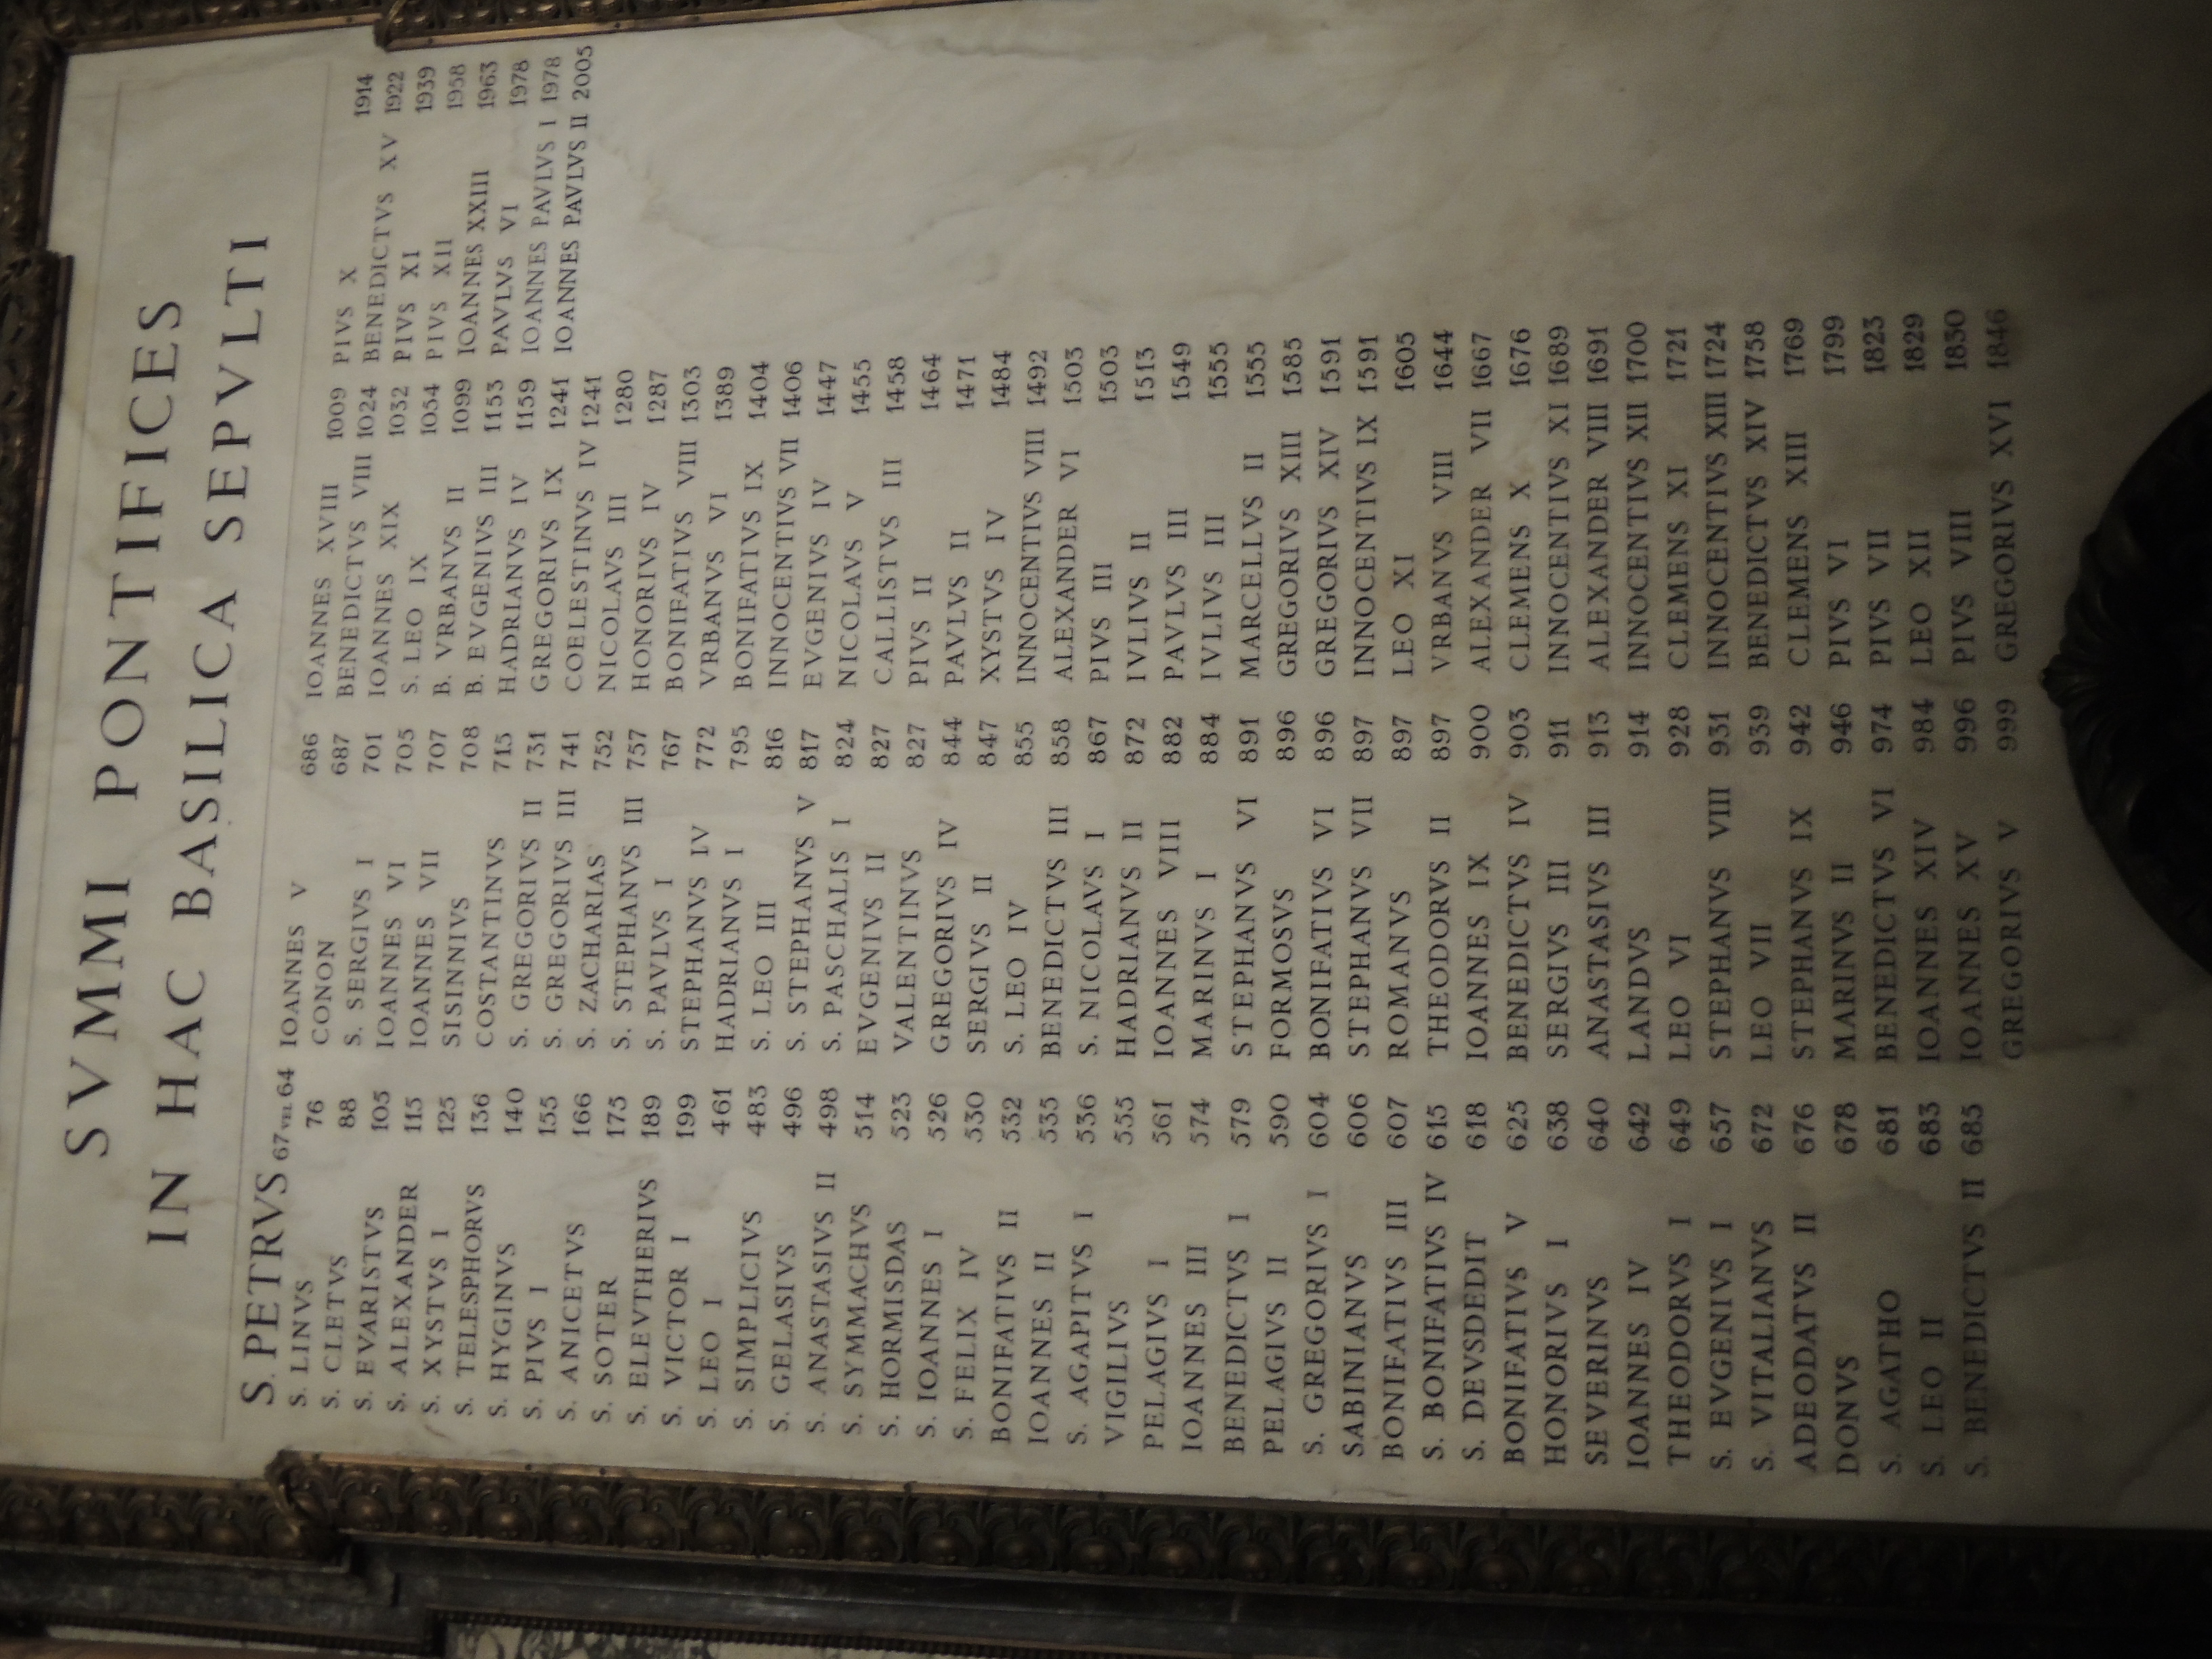 SVMMI PONTIFICES
IN HAC BASILICA SEPVLTI
S. PETRVS 67 VEL 64
S. LINVS 76
S. CLETVS 88
S. EVARISTVS 105
S. ALEXANDER 115
S. XYSTVS I 125
S. TELESPHORVS 136
S. HYGINVS 140
S. PIVS I 155
S. ANICETVS 166
S. SOTER 175
S. ELEVTHERIVS 189
S. VICTOR I 199
S. LEO I 461
S. SIMPLICIVS 483
S. GELASIVS 496
S. ANASTASIVS II 498
S. SYMMACHVS 514
S. HORMISDAS 523
S. IOANNES I 526
S. FELIX IV 530
BONIFATIVS II 532
IOANNES II 535
S. AGAPITVS I 536
VIGILIVS 555
PELAGIVS I 561
IOANNES III 574
BENEDICTVS I 579
PELAGIVS II 590
S. GREGORIVS I 604
SABINIANVS 606
BONIFATIVS III 607
S. BONIFATIVS IV 615
S. DEVSDEDIT 618
BONIFATIVS V 625
HONORIVS I 638
SEVERINVS 640
IOANNES IV 642
THEODORVS I 649
S. EVGENIVS I 657
S. VITALIANVS 672
ADEODATVS II 676
DONVS 678
S. AGATHO 681
S. LEO II 683
S. BENEDICTVS II 685
IOANNES V 686
CONON 687
S. SERGIVS I 701
IOANNES VI 705
IOANNES VII 707
SISINNIVS 708
COSTANTINVS 715
S. GREGORIVS II 731
S. GREGORIVS III 741
S. ZACHARIAS 752
S. STEPHANVS III 757
S. PAVLVS I 767
STEPHANVS IV 772
HADRIANVS I 795
S. LEO III 816
S. STEPHANVS V 817
S. PASCHALIS I 824
EVGENIVS II 827
VALENTINVS 827
GREGORIVS IV 844
SERGIVS II 847
S. LEO IV 855
BENEDICTVS III 858
S. NICOLAVS I 867
HADRIANVS II 872
IOANNES VIII 882
MARINVS I 884
STEPHANVS VI 891
FORMOSVS 896
BONIFATIVS VI 896
STEPHANVS VII 897
ROMANVS 897
THEODORVS II 897
IOANNES IX 900
BENEDICTVS IV 903
SERGIVS III 911
ANASTASIVS III 913
LANDVS 914
LEO VI 928
STEPHANVS VIII 931
LEO VII 939
STEPHANVS IX 942
MARINVS II 946
BENEDICTVS VI 974
IOANNES XIV 984
IOANNES XV 996
GREGORIVS V 999
IOANNES XVIII 1009
BENEDICTVS VIII 1024
IOANNES XIX 1032
S. LEO IX 1054
B. VRBANVS II 1099
B. EVGENIVS III 1153
HADRIANVS IV 1159
GREGORIVS IX 1241
COELESTINVS IV 1241
NICOLAVS III 1280
HONORIVS IV 1287
BONIFATIVS VIII 1303
VRBANVS VI 1389
BONIFATIVS IX 1404
INNOCENTIVS VII 1406
EVGENIVS IV 1447
NICOLAVS V 1455
CALLISTVS III 1458
PIVS II 1464
PAVLVS II 1471
XYSTVS IV 1484
INNOCENTIVS VIII 1492
ALEXANDER VI 1503
PIVS III 1503
IVLIVS II 1513
PAVLVS III 1549
IVLIVS III 1555
MARCELLVS II 1555
GREGORIVS XIII 1585
GREGORIVS XIV 1591
INNOCENTIVS IX 1591
LEO XI 1605
VRBANVS VIII 1644
ALEXANDER VII 1667
CLEMENS X 1676
INNOCENTIVS XI 1689
ALEXANDER VIII 1691
INNOCENTIVS XII 1700
CLEMENS XI 1721
INNOCENTIVS XIII 1724
BENEDICTVS XIV 1758
CLEMENS XIII 1769
PIVS VI 1799
PIVS VII 1823
LEO XII 1829
PIVS VIII 1830
GREGORIVS XVI 1846
PIVS X 1914
BENEDICTVS XV 1922
PIVS XI 1939
PIVS XII 1958
IOANNES XXIII 1963
PAVLVS VI 1978
IOANNES PAVLVS I 1978
IOANNES PAVLVS II 2005